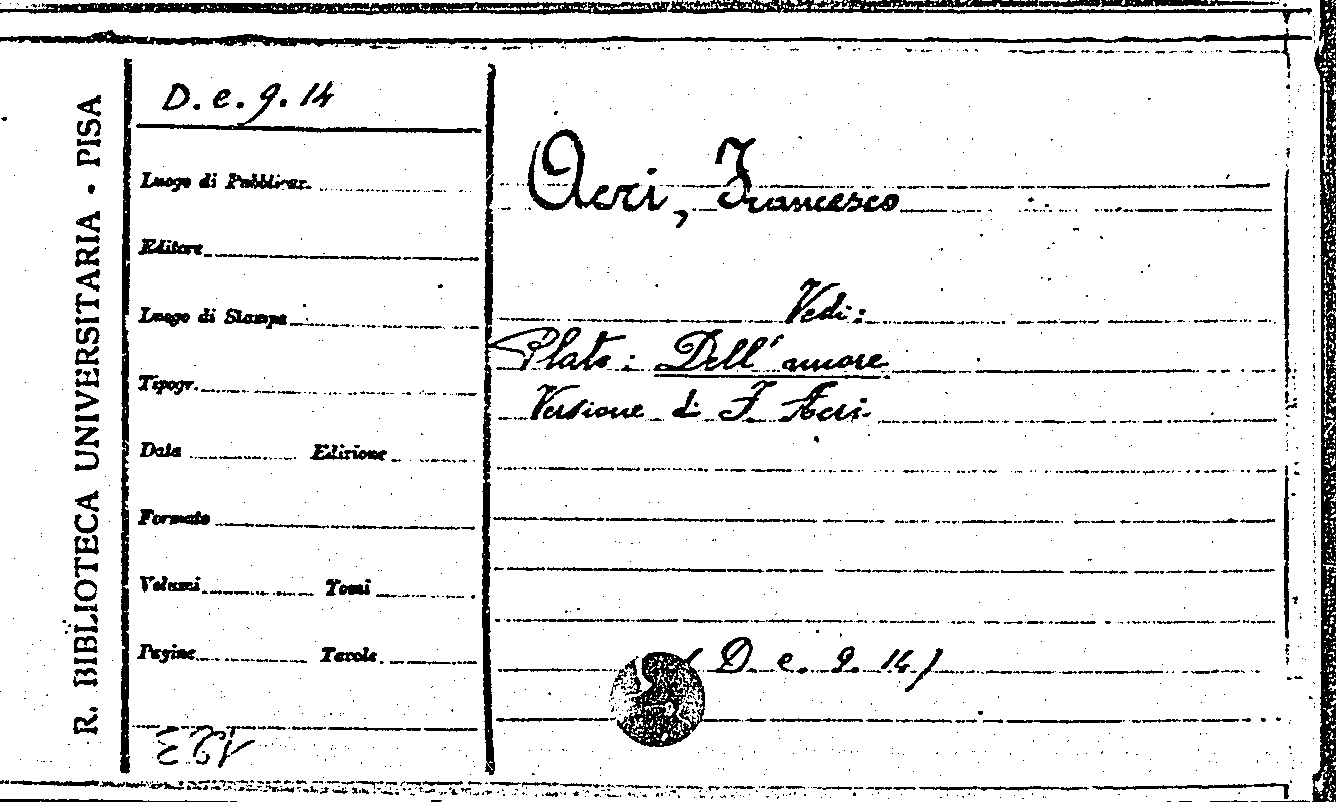 R. BIBLIOTECA UNIVERSITARIA - PISA
D. e. 9. 14
Luogo di Pubblicaz.
Editore
Luogo di Stampa
Tipogr.
Data Edizione
Formato
Volumi Tomi
Pagine Tavole
Acri, Francesco
Vedi:
Plato: Dell' amore
Versione di F. Acri
( D e. 9. 14)